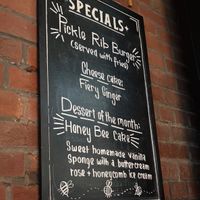 SPECIALS
Pickle Rib Burger
(served with fries)
Cheese cakes
Fiery Ginger
Dessert of the month:
Honey Bee Cake
Sweet homemade vanilla
Sponge with a buttercream
rose + honeycomb ice cream